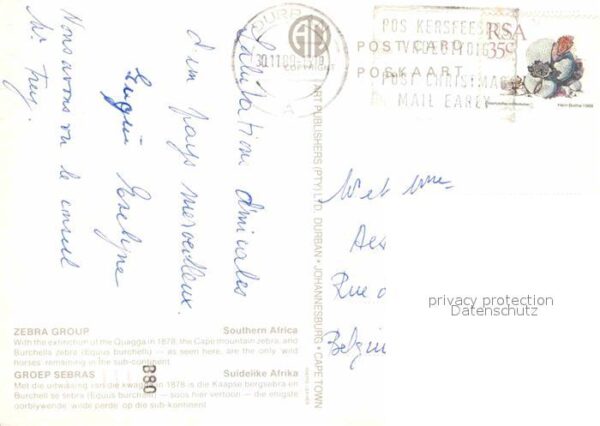 Salutation amicales
d'un pays merveilleux.
Eugène Evelyne
Nous avons vu le consul
Mr Frey.
ZEBRA GROUP Southern Africa
With the extinction of the Quagga in 1878, the Cape mountain zebra, and
Burchells zebra (Equus burchelli) — as seen here, are the only wild
horses remaining in the sub-continent.
GROEP SEBRAS Suidelike Afrika
Met die uitwissing van die kwagga in 1878 is die Kaapse bergsebra en
Burchell se sebra (Equus burchelli) — soos hier vertoon — die enigste
oorblywende wilde perde op die sub-kontinent.
B80
ART PUBLISHERS (PTY) LTD. DURBAN • JOHANNESBURG • CAPE TOWN
30.11.88
POSTCARD
POSKAART
POS KERSFEES
POST CHRISTMAS
MAIL EARLY
RSA
35c
Rue
privacy protection
Datenschutz